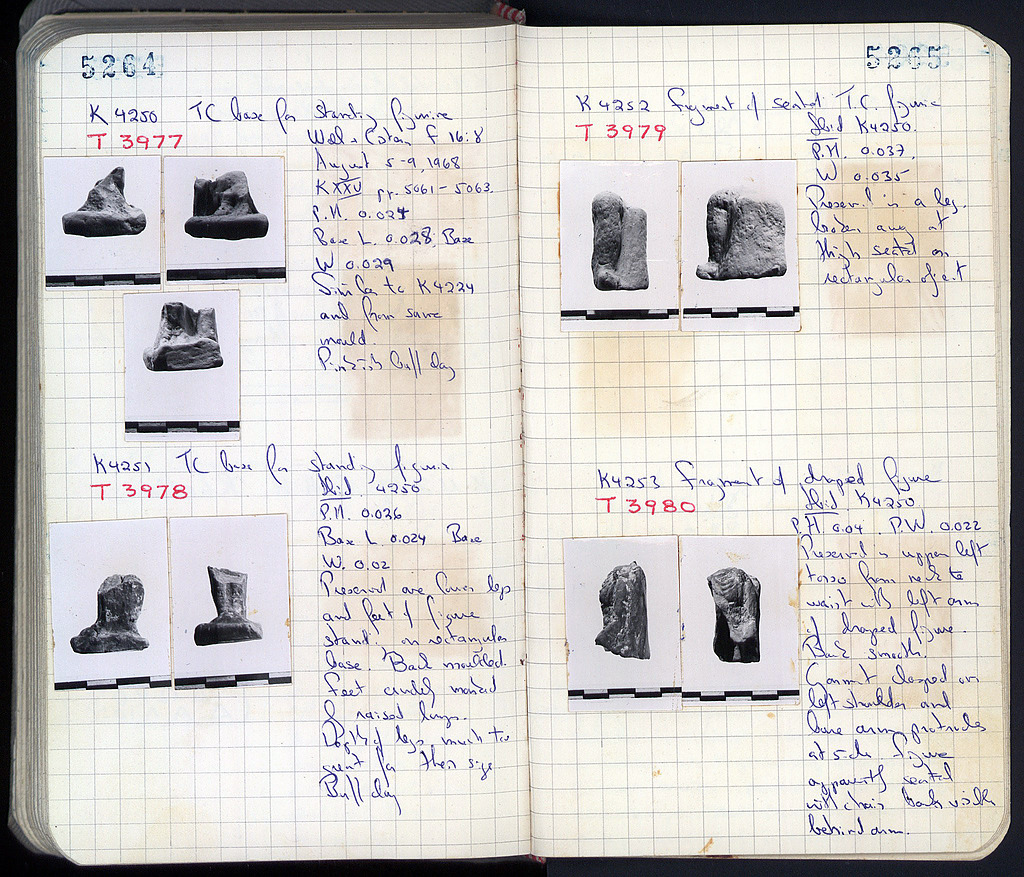 5264
K 4250 TC base for standing figurine
T 3977
Well & Cistern F 16:8
August 5-9, 1968
K XXV pp. 5061-5063.
P.H. 0.027
Base L. 0.028 Base
W 0.029
Similar to K4224
and from same
mould.
Pinkish buff clay
K4251 TC base for standing figurine
T 3978
Ibid. 4250
P.H. 0.036
Base L. 0.024 Base
W. 0.02
Preserved are lower legs
and feet of figure
standing on rectangular
base. Back moulded.
Feet crudely marked
raised
of legs much too
great for their size
Buff clay
5265
K 4252 Fragment of seated T.C. figurine
T 3979
Ibid K4250.
P.H. 0.037.
W 0.035
Preserved is a leg,
broken away at
thigh seated on
rectangular object
K4253 Fragment of draped figure
T 3980
Ibid K4250
P.H. 0.04. P.W. 0.022
Preserved is upper left
torso from neck to
waist with left arm
of draped figure.
Back smooth.
Garment clasped on
left shoulder and
bare arm protrudes
at side. Figure
apparently seated
with chair back visible
behind arm.